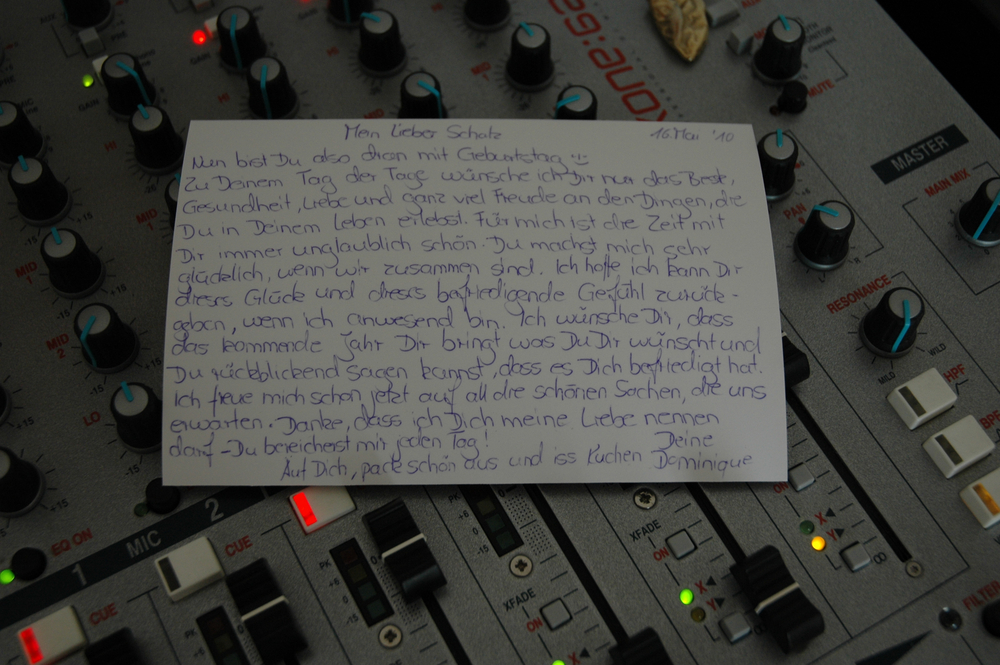 Mein Lieber Schatz 16. Mai '10
Nun bist Du also dran mit Geburtstag :)
Zu Deinem Tag der Tage wünsche ich Dir nur das Beste,
Gesundheit, Liebe und ganz viel Freude an den Dingen, die
Du in Deinem Leben erlebst. Für mich ist die Zeit mit
Dir immer unglaublich schön. Du machst mich sehr
glücklich, wenn wir zusammen sind. Ich hoffe ich kann Dir
dieses Glück und dieses befriedigende Gefühl zurück-
geben, wenn ich anwesend bin. Ich wünsche Dir, dass
das kommende Jahr Dir bringt was Du Dir wünscht und
Du rückblickend sagen kannst, dass es Dich befriedigt hat.
Ich freue mich schon jetzt auf all die schönen Sachen, die uns
erwarten. Danke, dass ich Dich meine Liebe nennen
darf - Du bereicherst mir jeden Tag!
Deine
Auf Dich, pack schön aus und iss Kuchen Dominique
XONE:62
MUTE
MASTER
MAIN MIX
PAN
RESONANCE
MILD
WILD
HPF
FILTER
GAIN
HI
MID
+15
MID 1
MID 1
MID 2
LO
EQ ON
MIC
1
2
CUE
CUE
PK
+6
0
-15
XFADE
ON
XFADE
ON
X
Y
X
Y